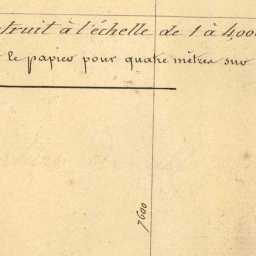 struit à l'échelle de 1 à 4,000
le papier pour quatre mètres sur
7600